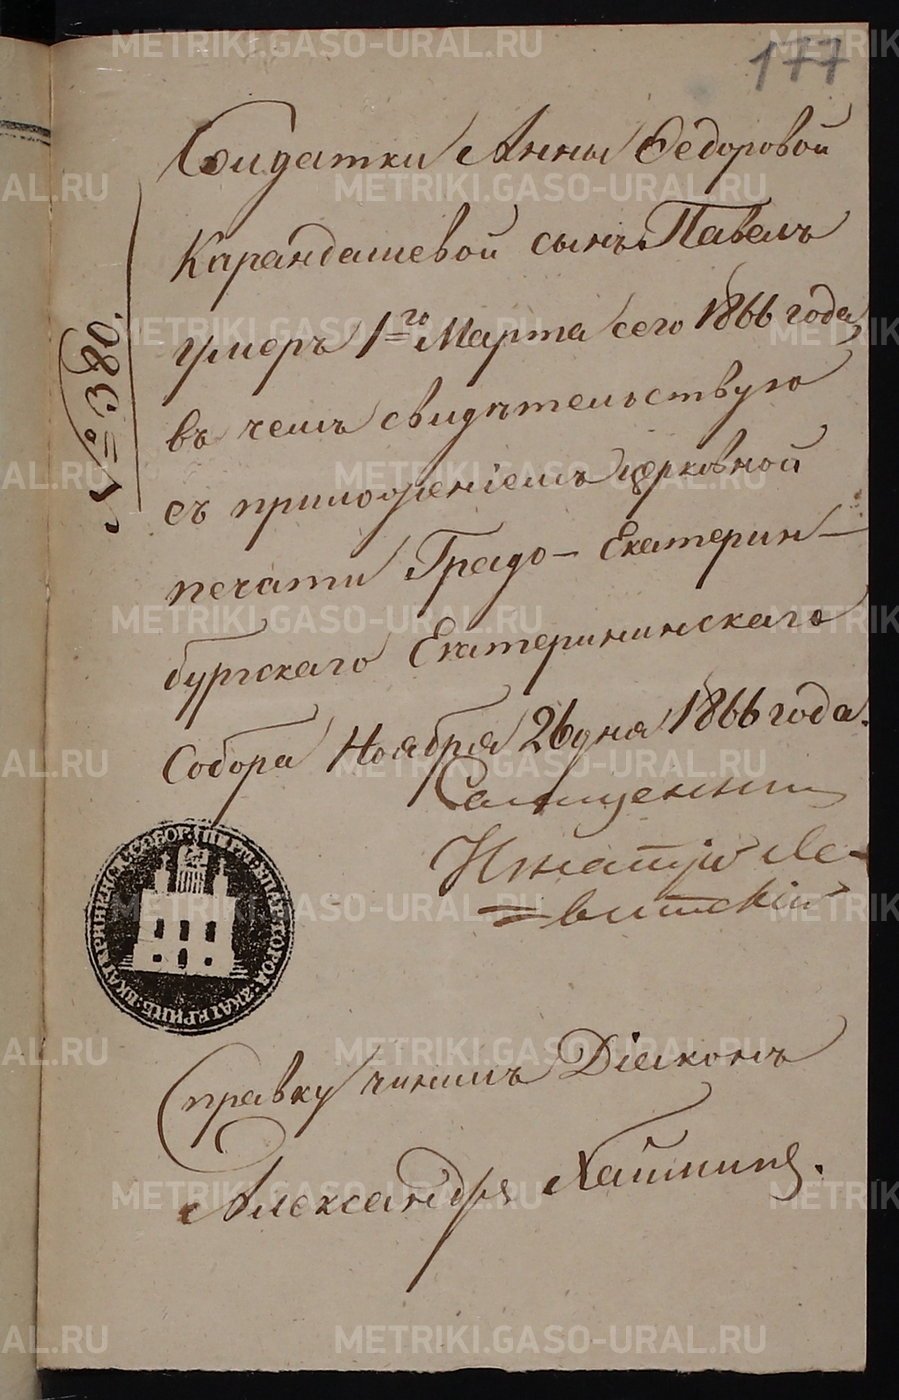 177
Солдатки Анны Федоровой
Карандашевой сынъ Павелъ
умеръ 1го Марта сего 1866 года,
въ чемъ свидѣтельствую
съ приложеніемъ церковной
печати Градо-Екатерин-
бургскаго Екатерининскаго
Собора Ноября 26 дня 1866 года.
Священникъ
Игнатій Ле-
витскій
№ 380.
Справку чинилъ Діаконъ
Александръ
METRIKI.GASO-URAL.RU